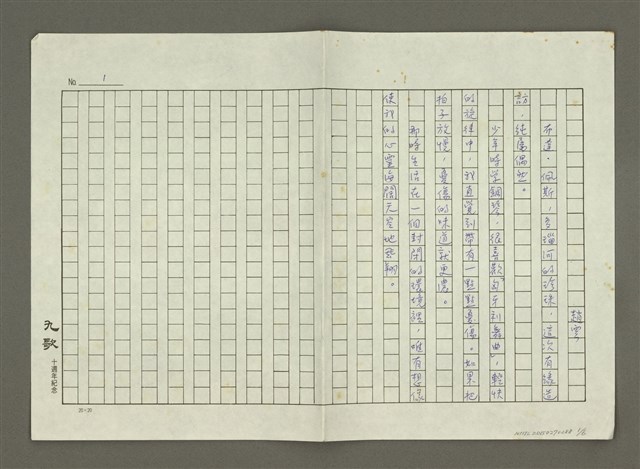 No 1
趙雲
布達·佩斯,多瑙河的珍珠,這次有緣造
訪,純屬偶然。
少年時學鋼琴,很喜歡匈牙利舞曲,輕快
的旋律中,我直覺到帶有一點點憂傷。如果把
拍子放慢,憂傷的味道就更濃。
那時生活在一個封閉的環境裡,唯有想像
使我的心靈海闊天空地飛翔。
九歌 十週年紀念
20×20
1/6